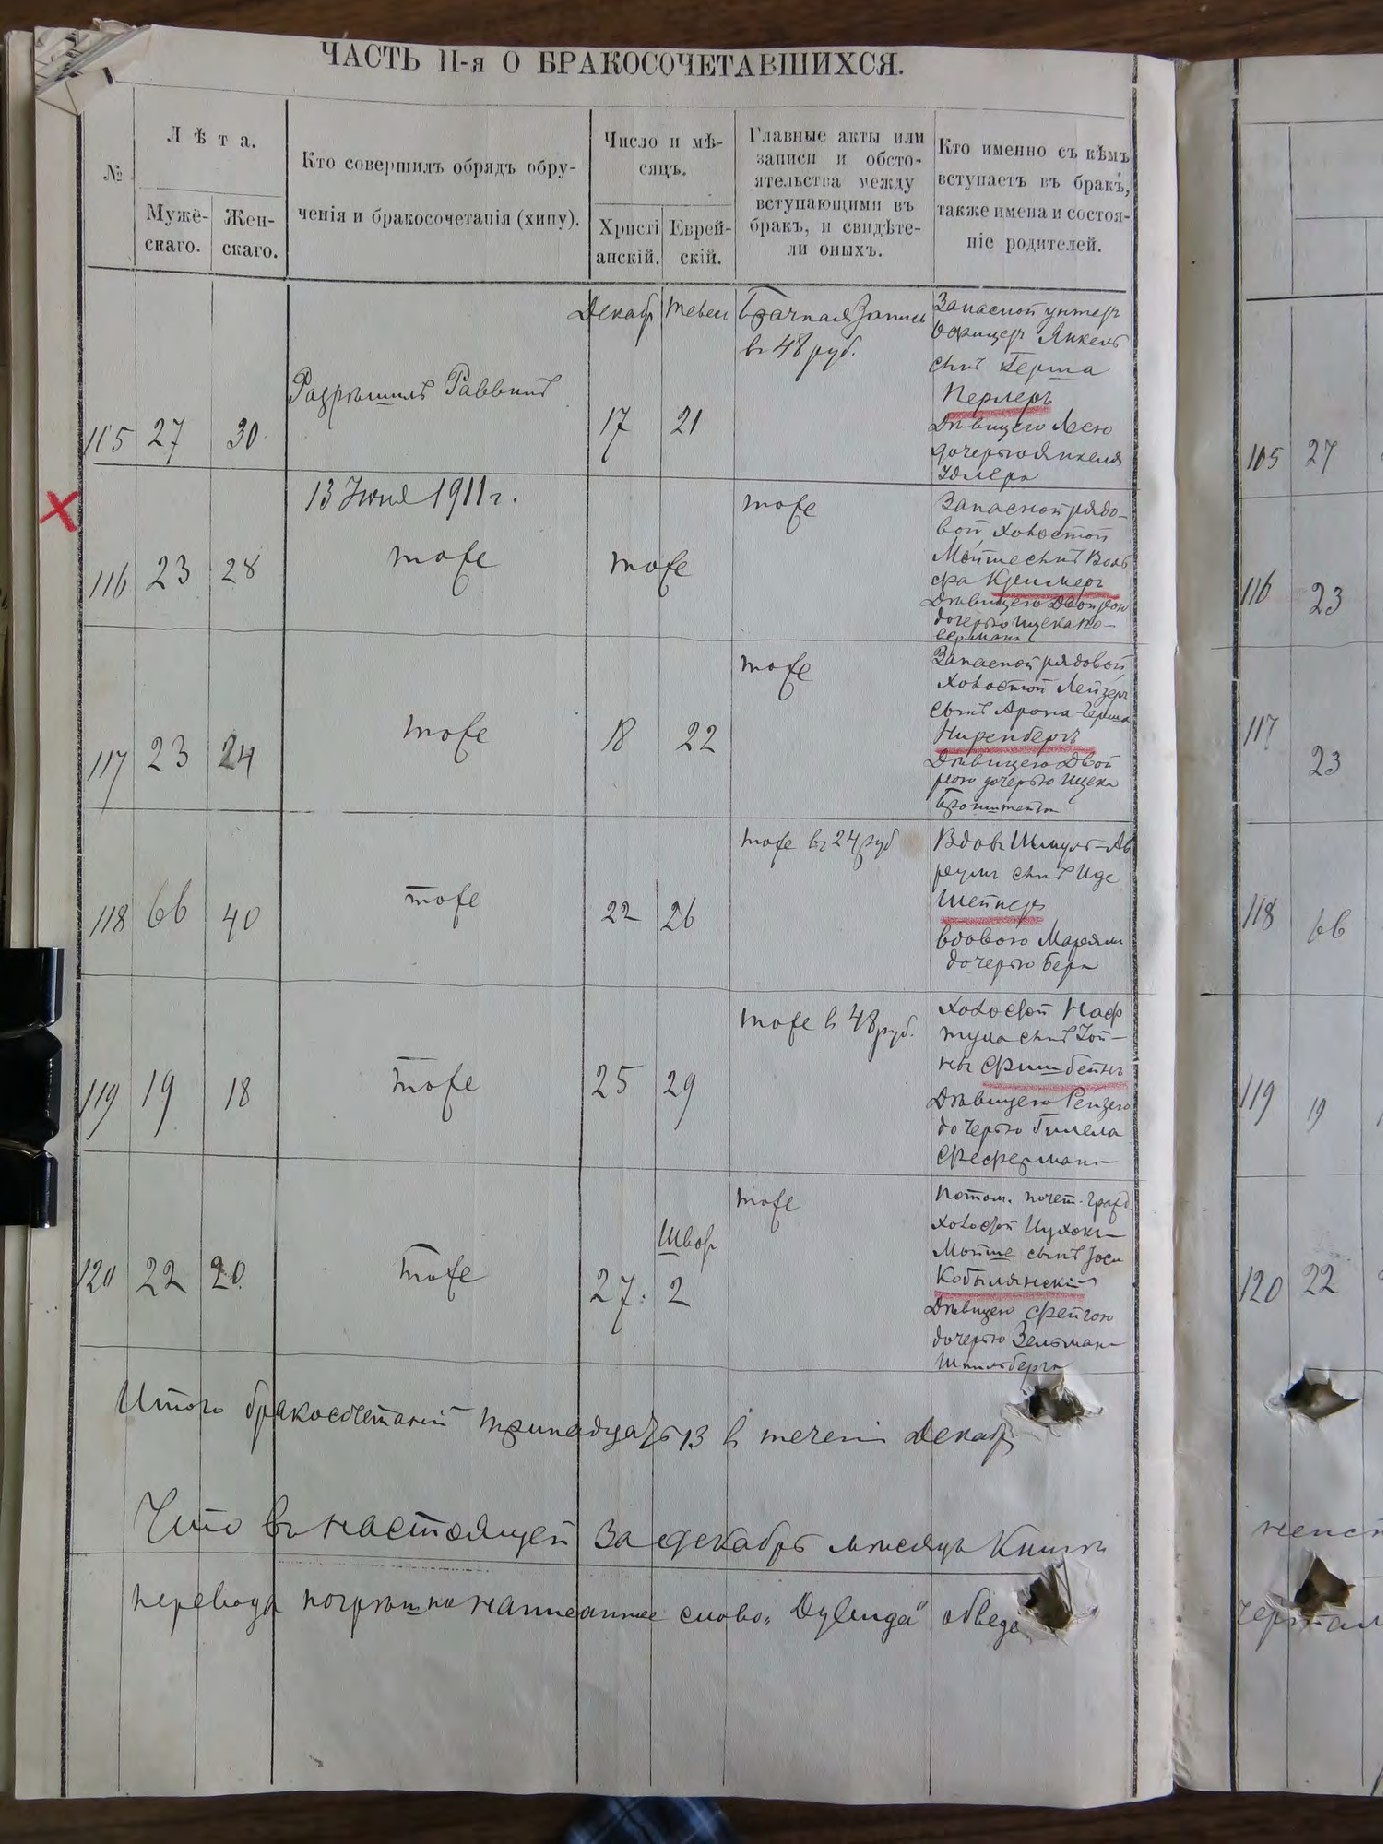 ЧАСТЬ II-я О БРАКОСОЧЕТАВШИХСЯ.
№
Лѣта.
Мужё-
скаго.
Жен-
скаго.
Кто совершилъ обрядъ обру-
ченія и бракосочетанія (хипу).
Число и мѣ-
сяцъ.
Христі
анскій.
Еврей-
скій.
Главные акты или
записи и обсто-
ятельства между
вступающими въ
бракъ, и свидѣте-
ли оныхъ.
Кто именно съ кѣмъ
вступаетъ въ бракъ,
также имена и состоя-
ніе родителей.
115 27 30
Разрѣшилъ Раввинъ
Декабр Тевец
17 21
Брачная Запись
въ 48 руб.
Запасной унтеръ
Офицеръ Янкель
сынъ Герша
Перлеръ
Дѣвицею Лею
дочерью Янкеля
13 Июня 1911 г.
116 23 28
тоже
тоже
тоже
Запасной рядо-
вой, Холостой
Мойше сынъ Воль
фа Кремеръ
Дѣвицею Двойрою
дочерью Ицека
117 23 24
тоже
18 22
тоже
Запасной рядовой
Холостой Лейзеръ
сынъ Арона-Герша
Ниренбергъ
Дѣвицею Двой
рою дочерью Ицека
118 66 40
тоже
22 26
тоже въ 24 руб
Вдов Шмуль-Ав
румъ сынъ Иде
Шейнеръ
вдовою Мариям
дочерью Бера
119 19 18
тоже
25 29
тоже в 48 руб.
Холостой Наф
тула сынъ Хой-
ны Фришбейнъ
Дѣвицею Рейзею
дочерью Гилела
Феферман
120 22 20.
тоже
27. Швор
2
тоже
Потом. почет. гражд
Холостой Ицхокъ
Мойше сынъ Йоси
Кобылянскій
Дѣвицею Фейгою
дочерью Зельмана
Итого бракосочетаній тринадцать 13 в течени Декабр
Что въ настоящей за декабрь мѣсяцъ Книги
перевода погрѣшно написанное слово
115 27
116 23
117
23
118 66
119 19
120 22